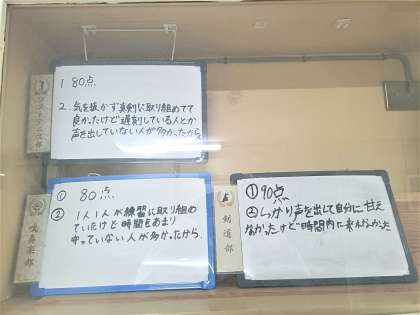 ソフトテニス部
1 80点
2. 気を抜かず真剣に取り組めてて
良かったけど遅刻している人とか
声を出していない人が多かったから
吹奏楽部
① 80点
② 1人1人が練習に取り組め
ていたけど時間をあまり
守っていない人が多かったから.
剣道部
① 90点
② しっかり声を出して自分に甘え
なかったけど時間内に来れなかった